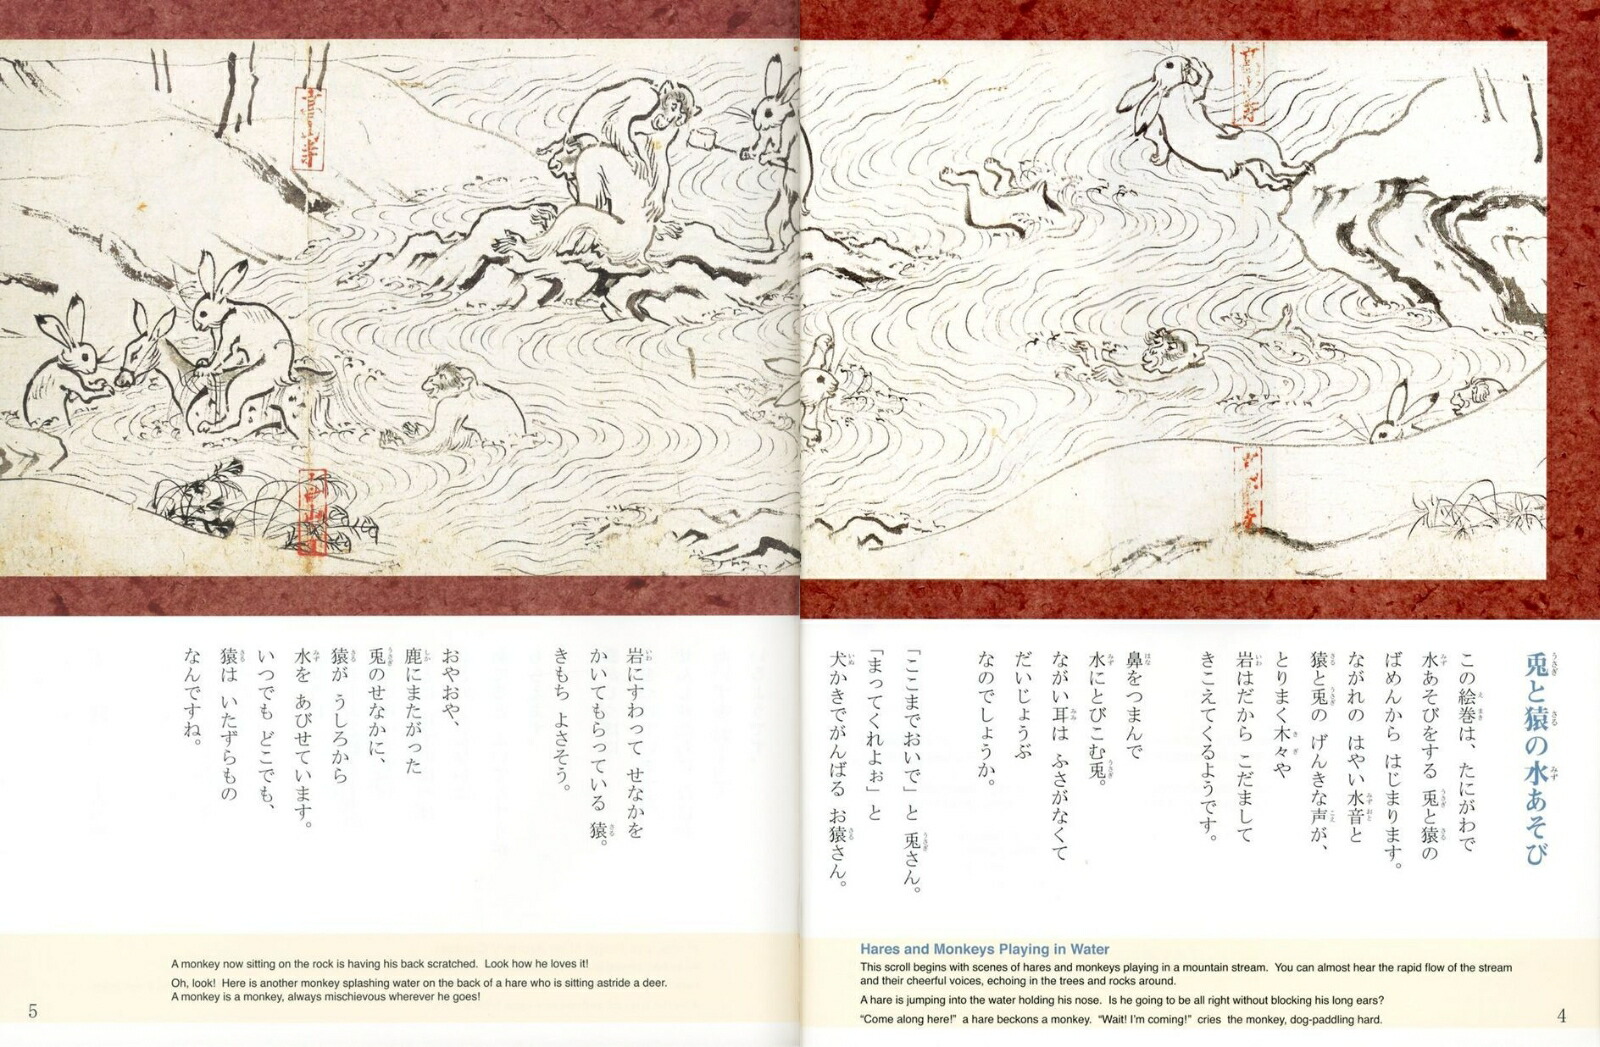 兎と猿の水あそび
この絵巻は、たにがわで
水あそびをする 兎と猿の
ばめんから はじまります。
ながれの はやい水音と
猿と兎の げんきな声が、
とりまく木々や
岩はだから こだまして
きこえてくるようです。
鼻をつまんで
水にとびこむ兎。
ながい耳は ふさがなくて
だいじょうぶ
なのでしょうか。
「ここまでおいで」と 兎さん。
「まってくれよぉ」と
犬かきでがんばる お猿さん。
Hares and Monkeys Playing in Water
This scroll begins with scenes of hares and monkeys playing in a mountain stream. You can almost hear the rapid flow of the stream
and their cheerful voices, echoing in the trees and rocks around.
A hare is jumping into the water holding his nose. Is he going to be all right without blocking his long ears?
“Come along here!” a hare beckons a monkey. “Wait! I’m coming!” cries the monkey, dog-paddling hard.
4
岩にすわって せなかを
かいてもらっている 猿。
きもち よさそう。
おやおや、
鹿にまたがった
兎のせなかに、
猿が うしろから
水を あびせています。
いつでも どこでも、
猿は いたずらもの
なんですね。
A monkey now sitting on the rock is having his back scratched. Look how he loves it!
Oh, look! Here is another monkey splashing water on the back of a hare who is sitting astride a deer.
A monkey is a monkey, always mischievous wherever he goes!
5